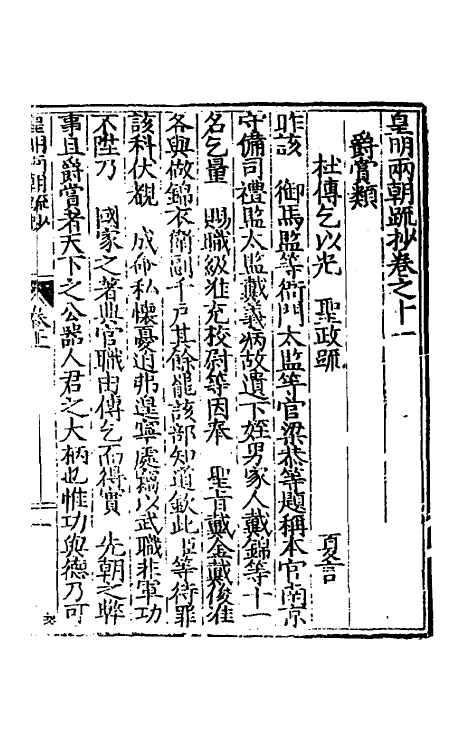 皇明兩朝疏抄卷之十一
爵賞類
杜傳乞以光　聖政疏　夏言
昨該　御馬監等衙門太監等官梁恭等題稱本官南京
守備司禮監太監戴義病故遺下姪男家人戴錦等十一
名乞量　賜職級准充校尉等因奉　聖旨戴金戴俊准
各與做錦衣衛副千戶其餘罷該部知道欽此臣等待罪
該科伏覩　成命私懷憂迫弗遑寧處竊以武職非軍功
不陞乃　國家之著典官職由傳乞而得實　先朝之弊
事且爵賞者天下之公器人君之大柄也惟功與德乃可
皇明兩朝疏抄　卷十一　一